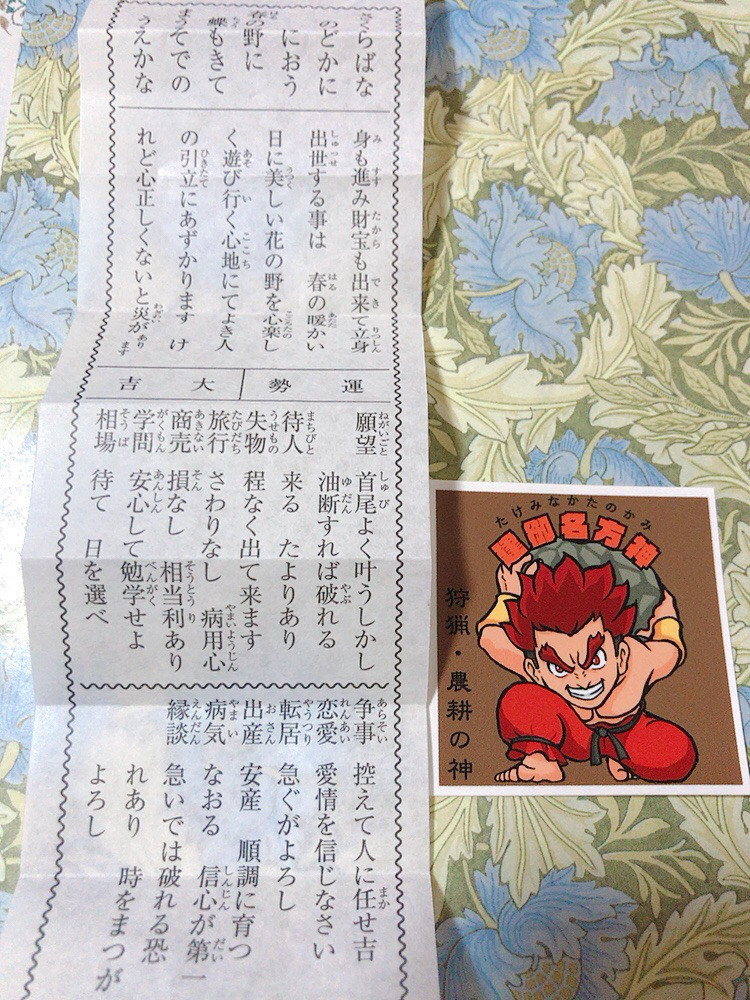 さらばな
のどかに
におう
春の野に
蝶もきて
まうそでの
うえかな
身も進み財宝も出来て立身
出世する事は　春の暖かい
日に美しい花の野を心楽し
く遊び行く心地にてよき人
の引立にあずかります　け
れど心正しくないと災があります
運勢　大吉
願望　首尾よく叶うしかし
油断すれば破れる
待人　来る　たよりあり
失物　程なく出て来ます
旅行　さわりなし　病用心
商売　損なし　相当利あり
学問　安心して勉学せよ
相場　待て　日を選べ
争事　控えて人に任せ吉
恋愛　愛情を信じなさい
転居　急ぐがよろし
出産　安産　順調に育つ
病気　なおる　信心が第一
縁談　急いでは破れる恐
れあり　時をまつが
よろし
たけみなかたのかみ
建御名方神
狩猟・農耕の神